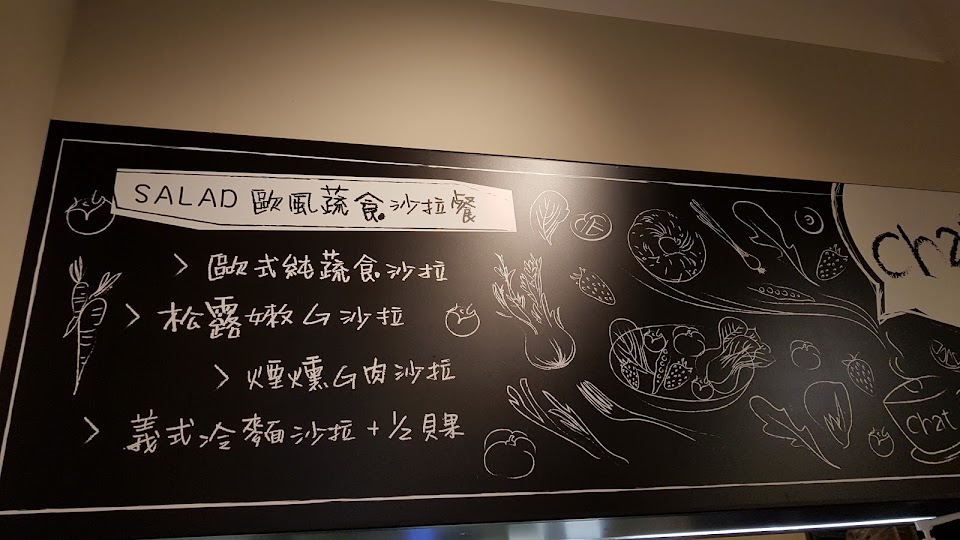 SALAD 歐風蔬食沙拉餐
> 歐式純蔬食沙拉
> 松露嫩ㄐ沙拉
> 煙燻ㄐ肉沙拉
> 義式冷麵沙拉 + 1/2 貝果
Chat
Chat